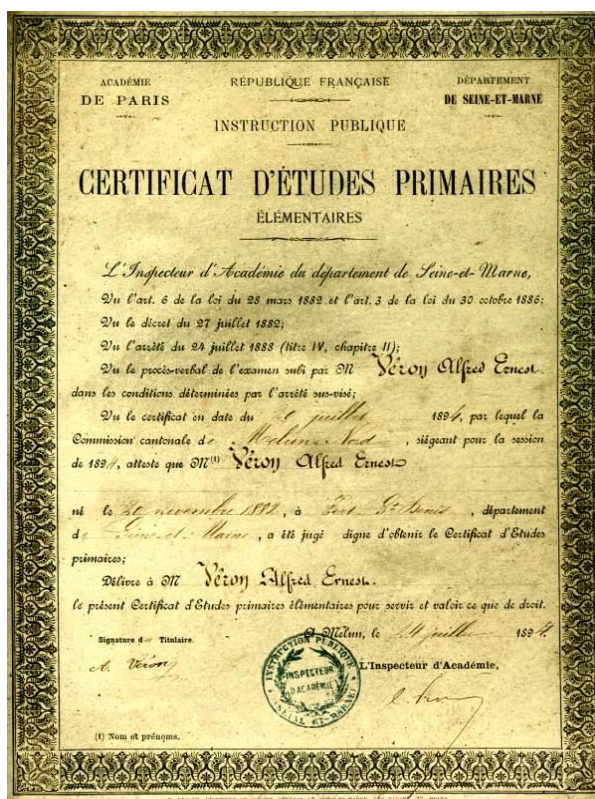 ACADÉMIE
DE PARIS
RÉPUBLIQUE FRANÇAISE
DÉPARTEMENT
DE SEINE-ET-MARNE
INSTRUCTION PUBLIQUE
CERTIFICAT D'ÉTUDES PRIMAIRES
ÉLÉMENTAIRES
L'Inspecteur d'Académie du département de Seine-et-Marne,
Vu l'art. 6 de la loi du 28 mars 1882 et l'art. 3 de la loi du 30 octobre 1886;
Vu le décret du 27 juillet 1882;
Vu l'arrêté du 24 juillet 1888 (titre IV, chapitre II);
Vu le procès-verbal de l'examen subi par M Véron Alfred Ernest
dans les conditions déterminées par l'arrêté sus-visé;
Vu le certificat en date du juillet 1894, par lequel la
Commission cantonale de Melun-Nord, siégeant pour la session
de 1894, atteste que M (1) Véron Alfred Ernest
né le 20 novembre 1882, à St Denis, département
de Seine-et-Marne, a été jugé digne d'obtenir le Certificat d'Etudes
primaires;
Délivre à M Véron Alfred Ernest.
le présent Certificat d'Etudes primaires élémentaires pour servir et valoir ce que de droit.
A Melun, le 24 juillet 1894.
Signature du Titulaire.
A. Véron
INSTRUCTION PUBLIQUE
INSPECTEUR
D'ACADÉMIE
SEINE-ET-MARNE
L'Inspecteur d'Académie,
(1) Nom et prénoms.